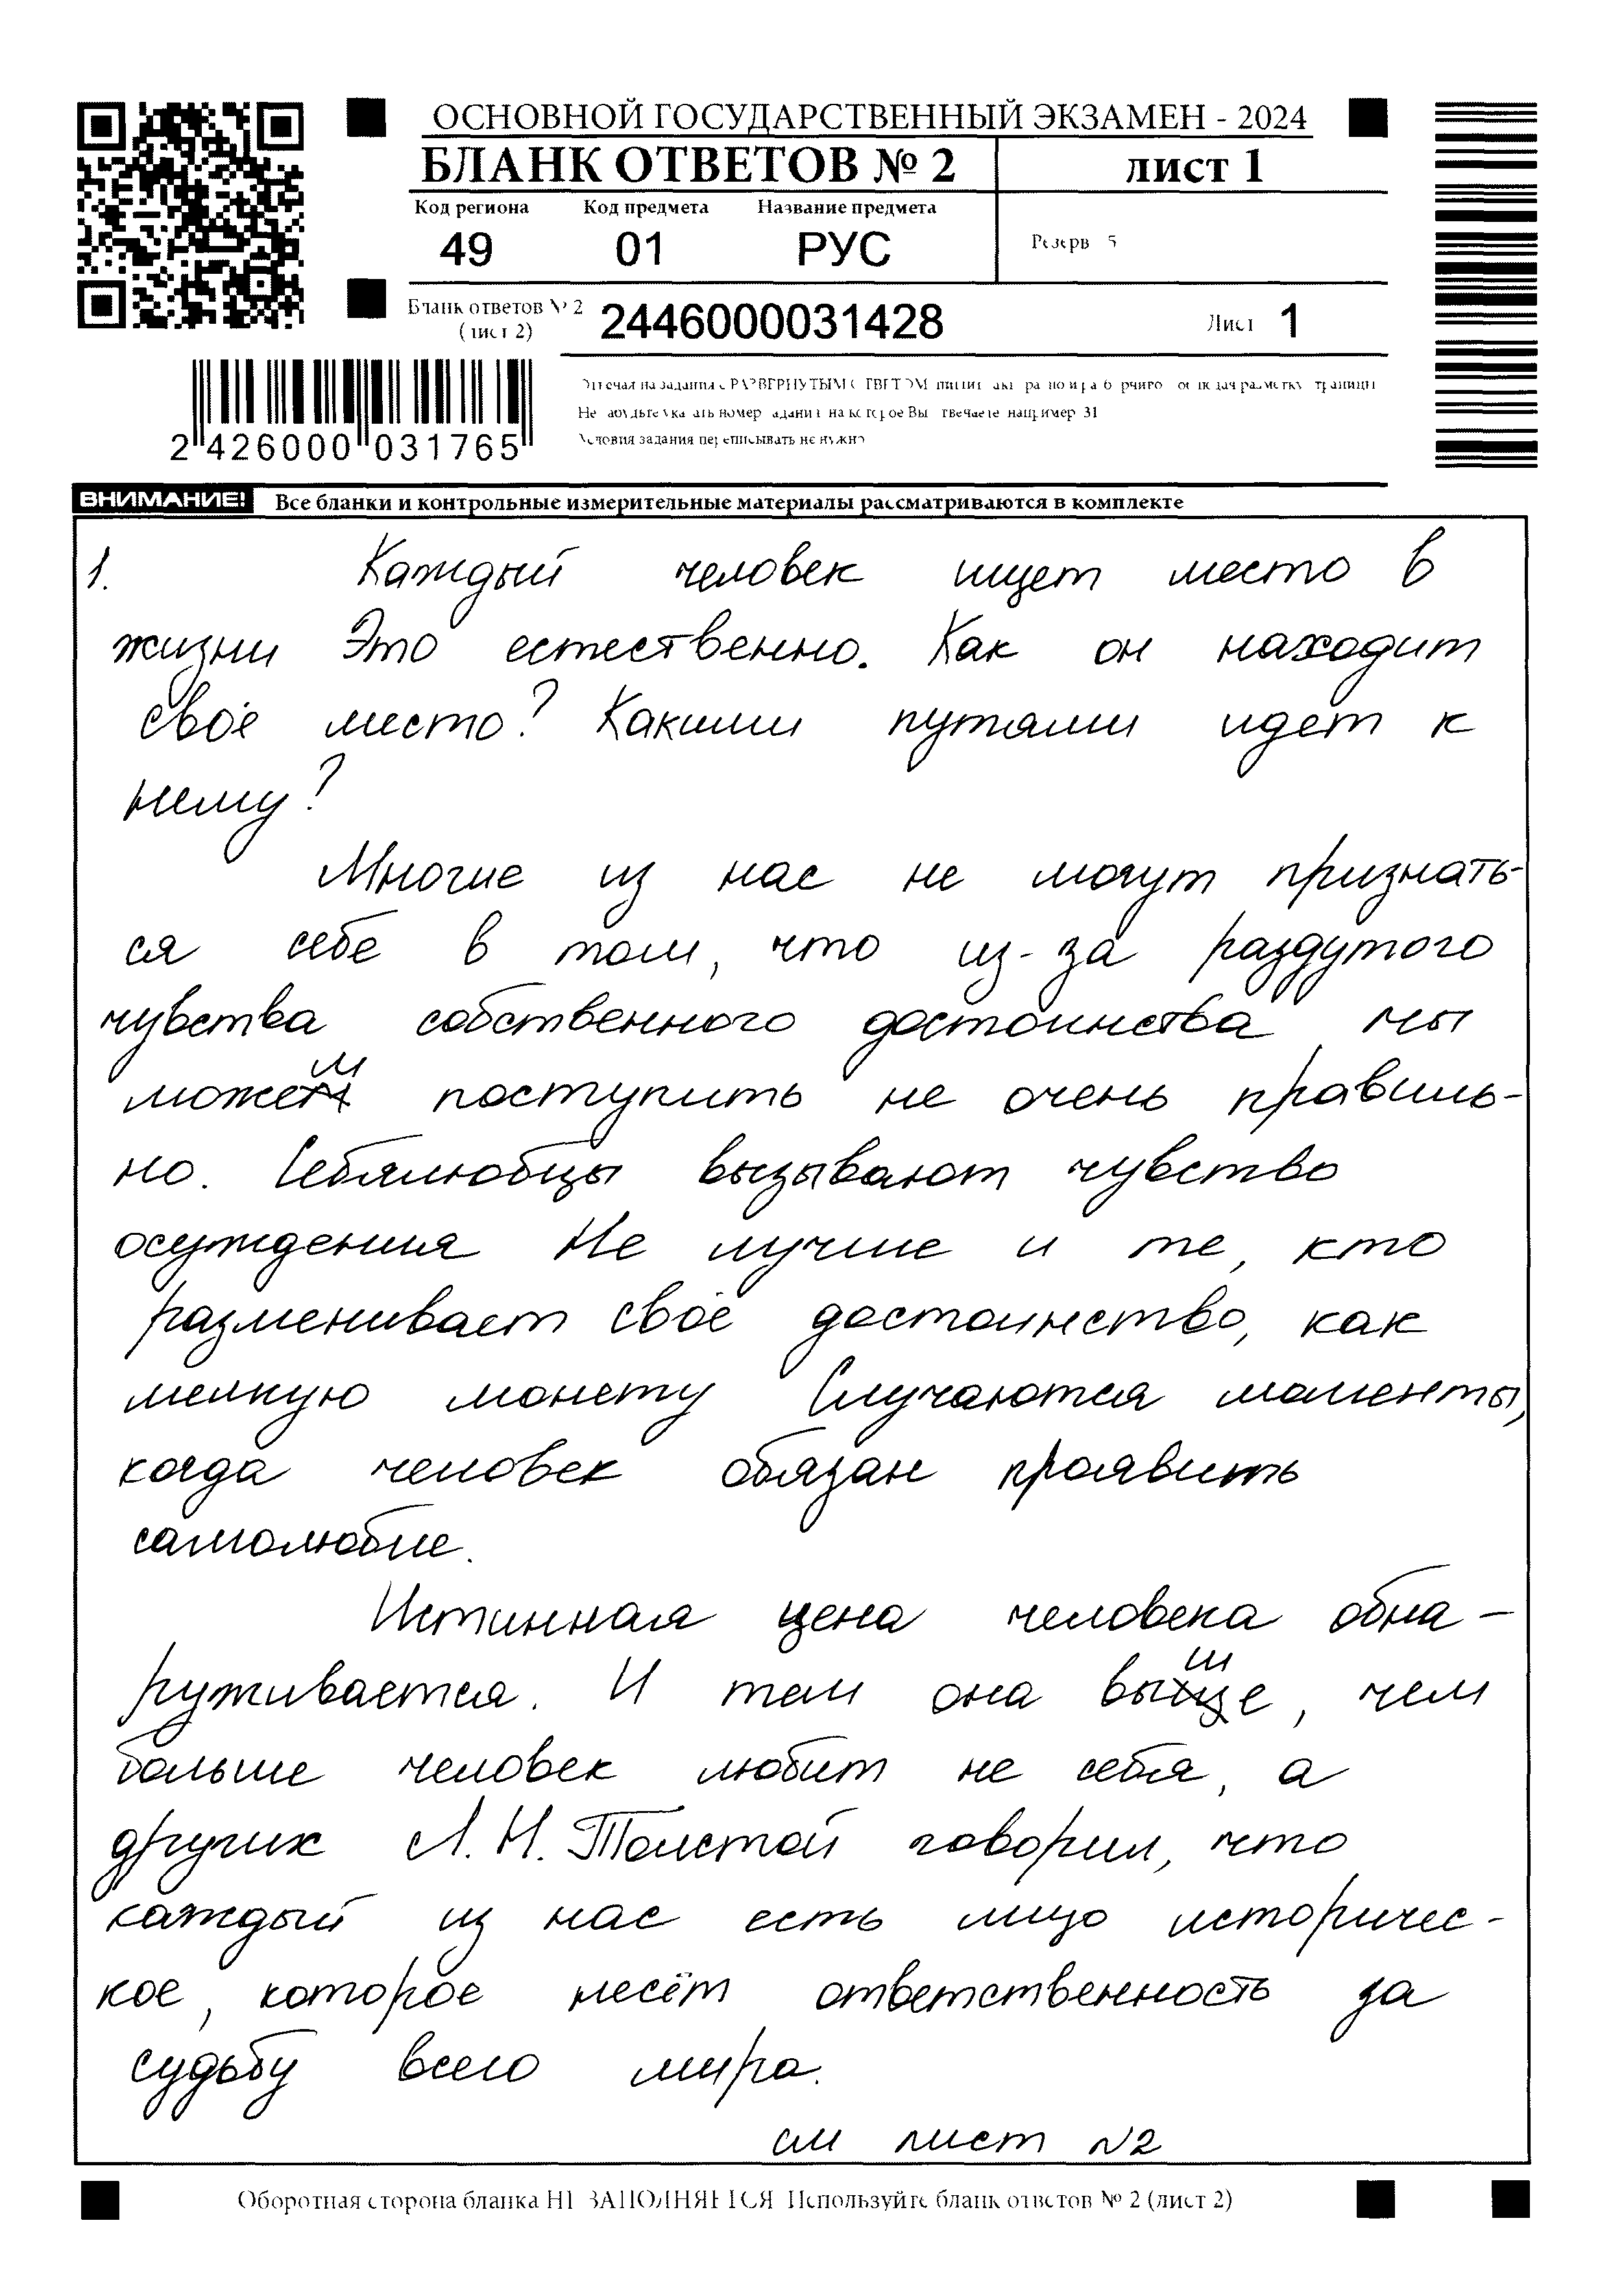 ОСНОВНОЙ ГОСУДАРСТВЕННЫЙ ЭКЗАМЕН - 2024
БЛАНК ОТВЕТОВ № 2
лист 1
Код региона Код предмета Название предмета
49 01 РУС
Резерв 5
Бланк ответов № 2
(лист 2)
2446000031428
Лист 1
2 426000 031765
ВНИМАНИЕ! Все бланки и контрольные измерительные материалы рассматриваются в комплекте
1. Каждый человек ищет место в
жизни Это естественно. Как он находит
своё место? Какими путями идет к
нему?
Многие из нас не могут признать-
ся себе в том, что из-за раздутого
чувства собственного достоинства мы
можем поступить не очень правиль-
но. Себялюбцы вызывают чувство
осуждения Не лучше и те, кто
разменивает своё достоинство, как
мелкую монету Случаются моменты,
когда человек обязан проявить
самолюбие.
Истинная цена человека обна-
руживается. И тем она выше, чем
больше человек любит не себя, а
других Л.Н.Толстой говорил, что
каждый из нас есть лицо историчес-
кое, которое несёт ответственность за
судьбу всего мира.
см лист №2
Оборотная сторона бланка НЕ ЗАПОЛНЯЕТСЯ Используйте бланк ответов № 2 (лист 2)